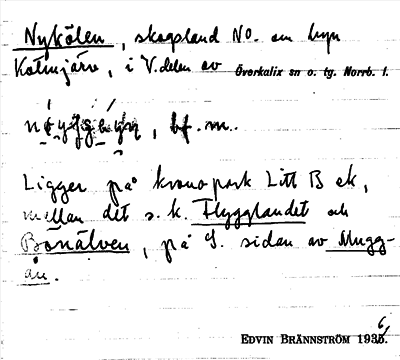 Nykölen, skogsland No. om byn
Kølmjärv, i V.delen av Överkalix sn o. tg. Norrb. l.
bf. m.
Ligger på kronopark Litt B ek,
mellan det s. k. Flygglandet och
Bönälven, på S. sidan av Mugg-
ån.
EDVIN BRÄNNSTRÖM 1936.